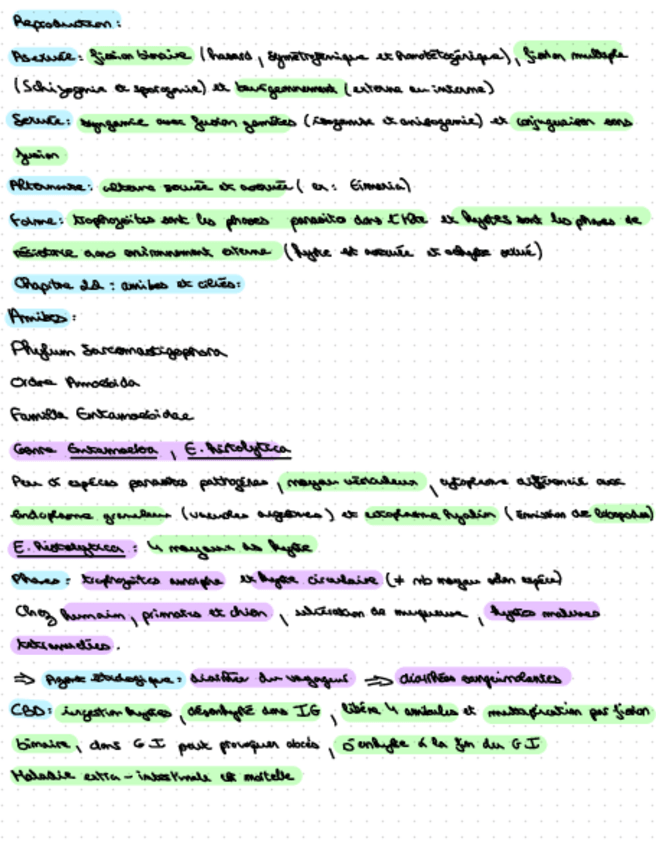 Reproduction :
Asexuée : fission binaire (hasard, symétrogénique et homothétogénique), fission multiple
(Schizogonie et sporogonie) et bourgeonnement (externe ou interne)
Sexuée : syngamie avec fusion gamètes (isogamie et anisogamie) et conjugaison sans
fusion
Alternance : alterne sexuée et asexuée (ex : Eimeria)
Forme : trophozoïtes sont les phases parasite dans l'hôte et kystes sont les phases de
résistance dans environnement externe (kyste est asexuée et ookyste sexué)
Chapitre 22 : amibes et ciliés :
Amibes :
Phylum Sarcomastigophora
Ordre Amoebida
Famille Entamoebidae
Genre Entamoeba, E. histolytica
Peu d'espèces parasites pathogènes, noyau vésiculeux, cytoplasme différencié avec
endoplasme granuleux (vacuoles digestives) et ectoplasme hyalin (émission de lobopodes)
E. histolytica : 4 noyaux ds kyste
Phases : trophozoïtes amorphe et kyste circulaire (≠ nb noyau selon espèce)
Chez humain, primates et chien, ulcération de muqueuse, kystes matures
tetranucléés.
⇒ Agent étiologique : diarrhée du voyageur ⇒ diarrhées sanguinolentes
CBD : ingestion kystes, désenkysté dans IG, libère 4 amibules et multiplication par fission
binaire, dans G.I peut provoquer abcès, s'enkyste à la fin du G I
Maladie extra-intestinale est mortelle